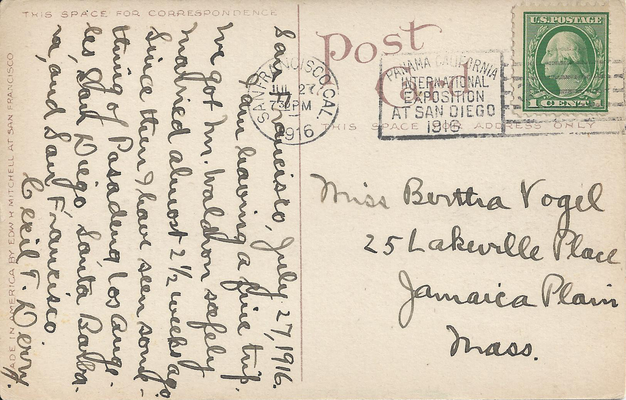 THIS SPACE FOR CORRESPONDENCE
Post
Card
THIS SPACE FOR ADDRESS ONLY
U.S. POSTAGE
1 CENT 1
SAN FRANCISCO, CAL.
JUL 27
7 30 PM
1916
PANAMA CALIFORNIA
INTERNATIONAL
EXPOSITION
AT SAN DIEGO
1916
San Francisco, July 27, 1916.
I am having a fine trip.
We got Mr. Waldron safely
married almost 2½ weeks ago.
Since then I have seen some-
thing of Pasadena, Los Ange-
les, San Diego, Santa Barba-
ra, and San Francisco.
Cecil T. Derry
Miss Bertha Vogel
25 Lakeville Place
Jamaica Plain
Mass.
MADE IN AMERICA BY EDW H MITCHELL AT SAN FRANCISCO